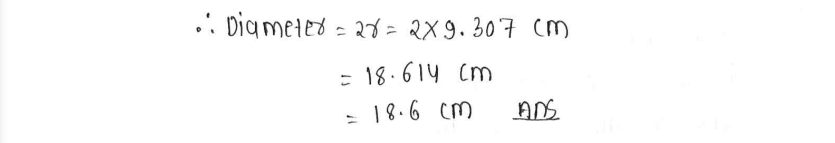 ∴ Diameter = 2r = 2×9.307 cm
= 18.614 cm
= 18.6 cm Ans